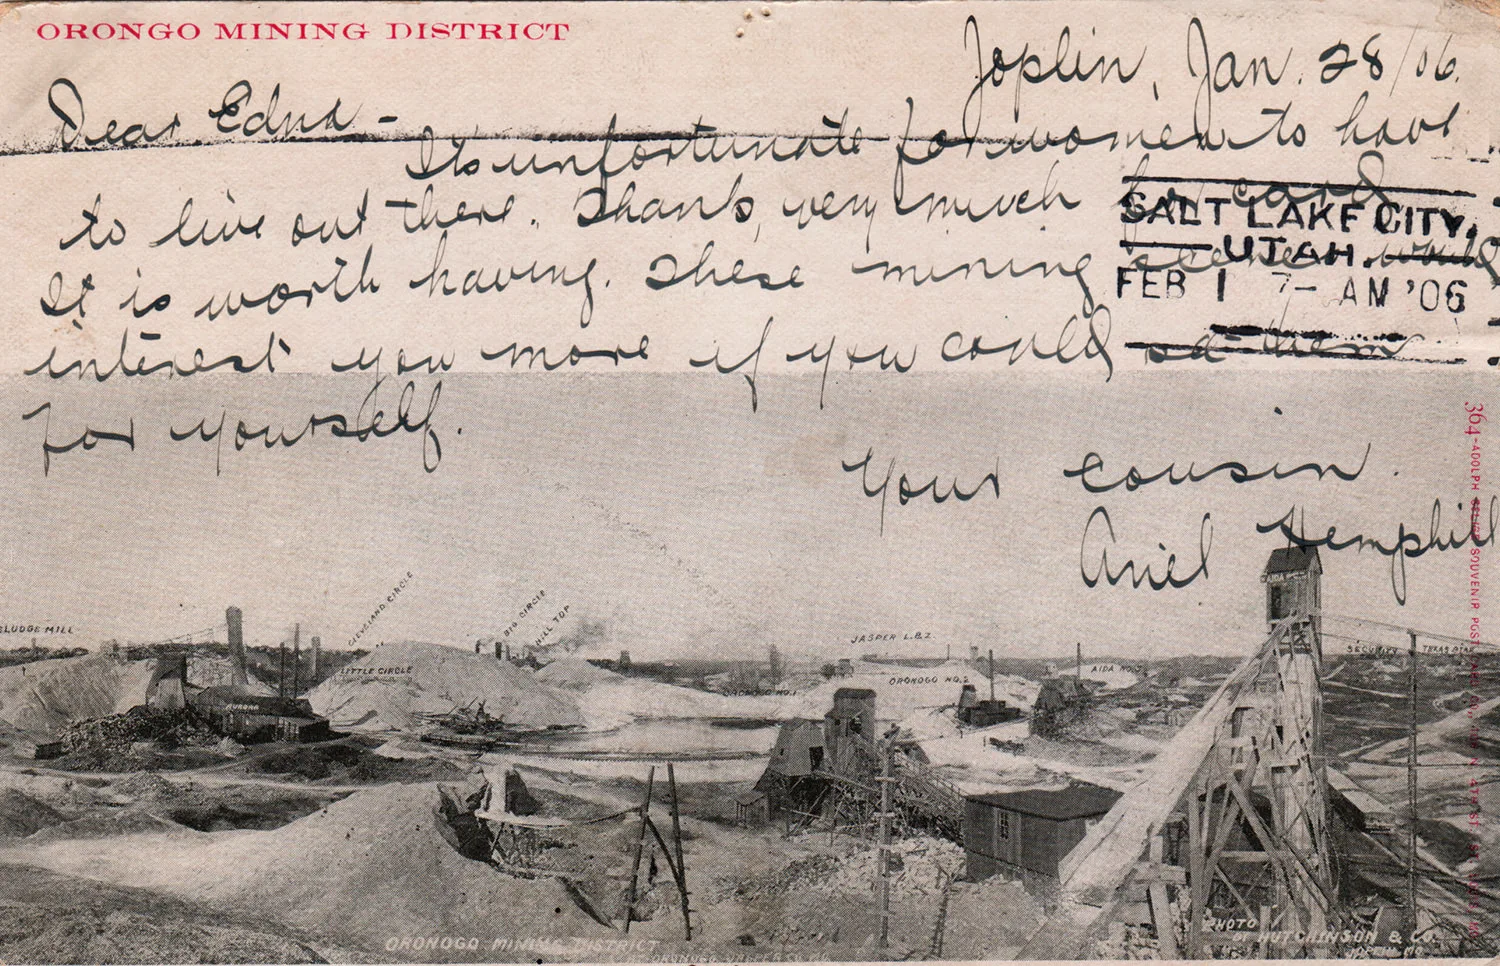 ORONGO MINING DISTRICT
Joplin, Jan. 28/06.
Dear Edna -
It's unfortunate for women to have
to live out there. Thanks, very much for card
SALT LAKE CITY,
UTAH.
FEB 1 7- AM '06
It is worth having. These mining scenes would
interest you more if you could see them
for yourself.
Your cousin.
Ariel Hemphill
SLUDGE MILL
CLEVELAND CIRCLE
BIG CIRCLE
HILL TOP
LITTLE CIRCLE
JASPER L.B.2
ORONOGO NO.1
ORONOGO NO.2
AIDA NO.
SECURITY
TEXAS
AURORA
ORONOGO MINING DISTRICT
AT ORONOGO JASPER CO. MO.
PHOTO
BY HUTCHINSON & CO.
JOPLIN MO.
364-ADOLPH SELIGE SOUVENIR POST